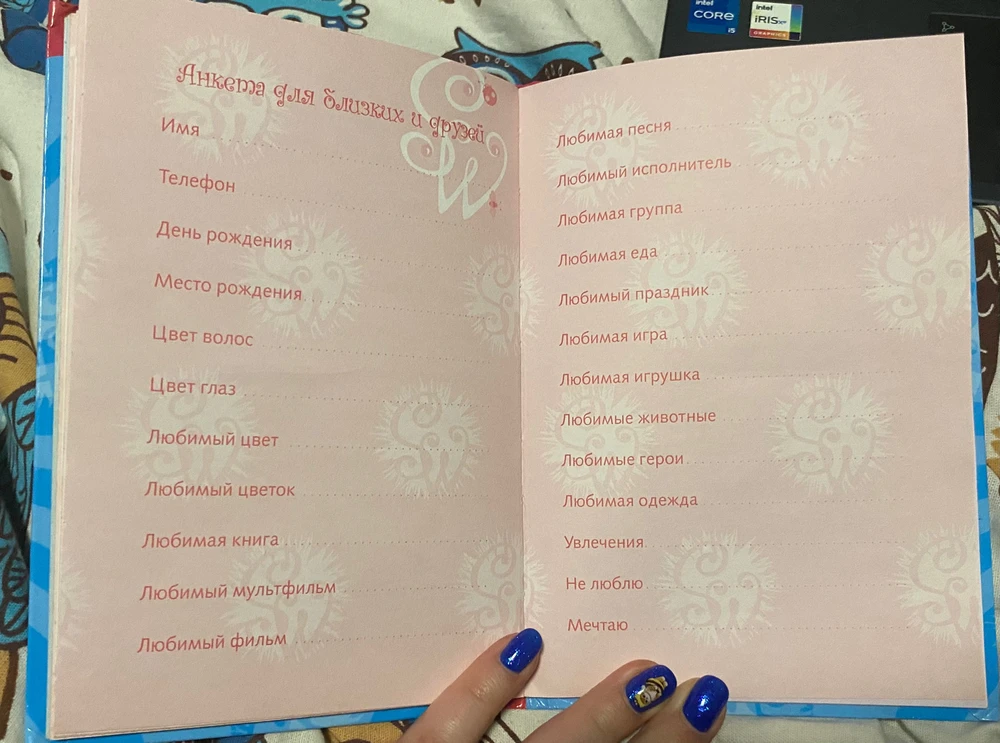 Анкета для близких и друзей
Имя
Телефон
День рождения
Место рождения
Цвет волос
Цвет глаз
Любимый цвет
Любимый цветок
Любимая книга
Любимый мультфильм
Любимый фильм
Любимая песня
Любимый исполнитель
Любимая группа
Любимая еда
Любимый праздник
Любимая игра
Любимая игрушка
Любимые животные
Любимые герои
Любимая одежда
Увлечения
Не люблю
Мечтаю
intel
CORE
i5
intel
iRIS Xe
GRAPHICS